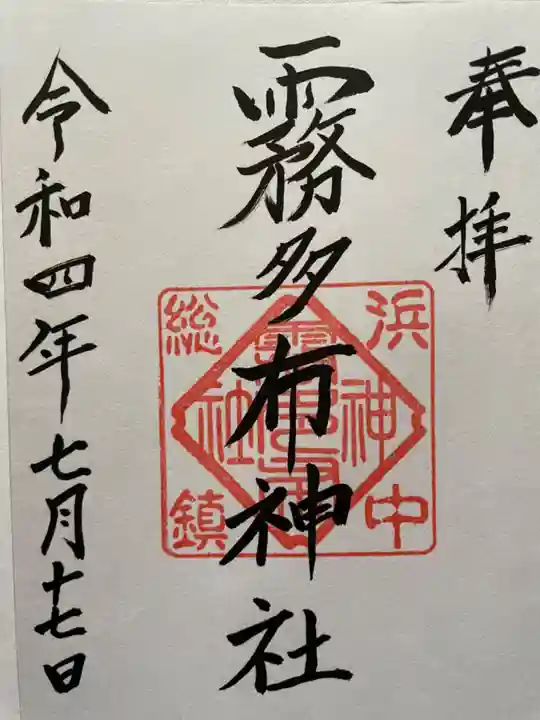 奉拝
霧多布神社
浜中
総鎮
神社
令和四年七月十七日